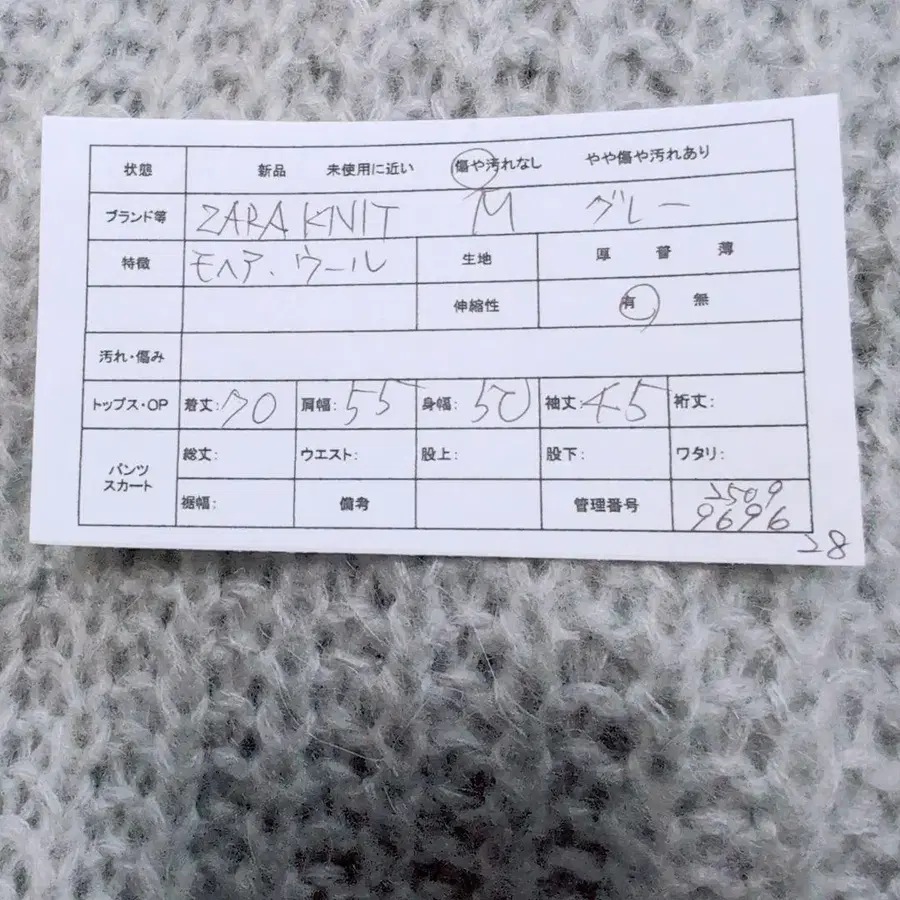 状態 新品 未使用に近い 傷や汚れなし やや傷や汚れあり
ブランド等 ZARA KNIT M グレー
特徴 モヘア、ウール 生地 厚 普 薄
伸縮性 有 無
汚れ・傷み
トップス・OP 着丈:70 肩幅:55 身幅:50 袖丈:45 裄丈:
パンツ スカート 総丈: ウエスト: 股上: 股下: ワタリ:
裾幅: 備考 管理番号 2509
9696
28